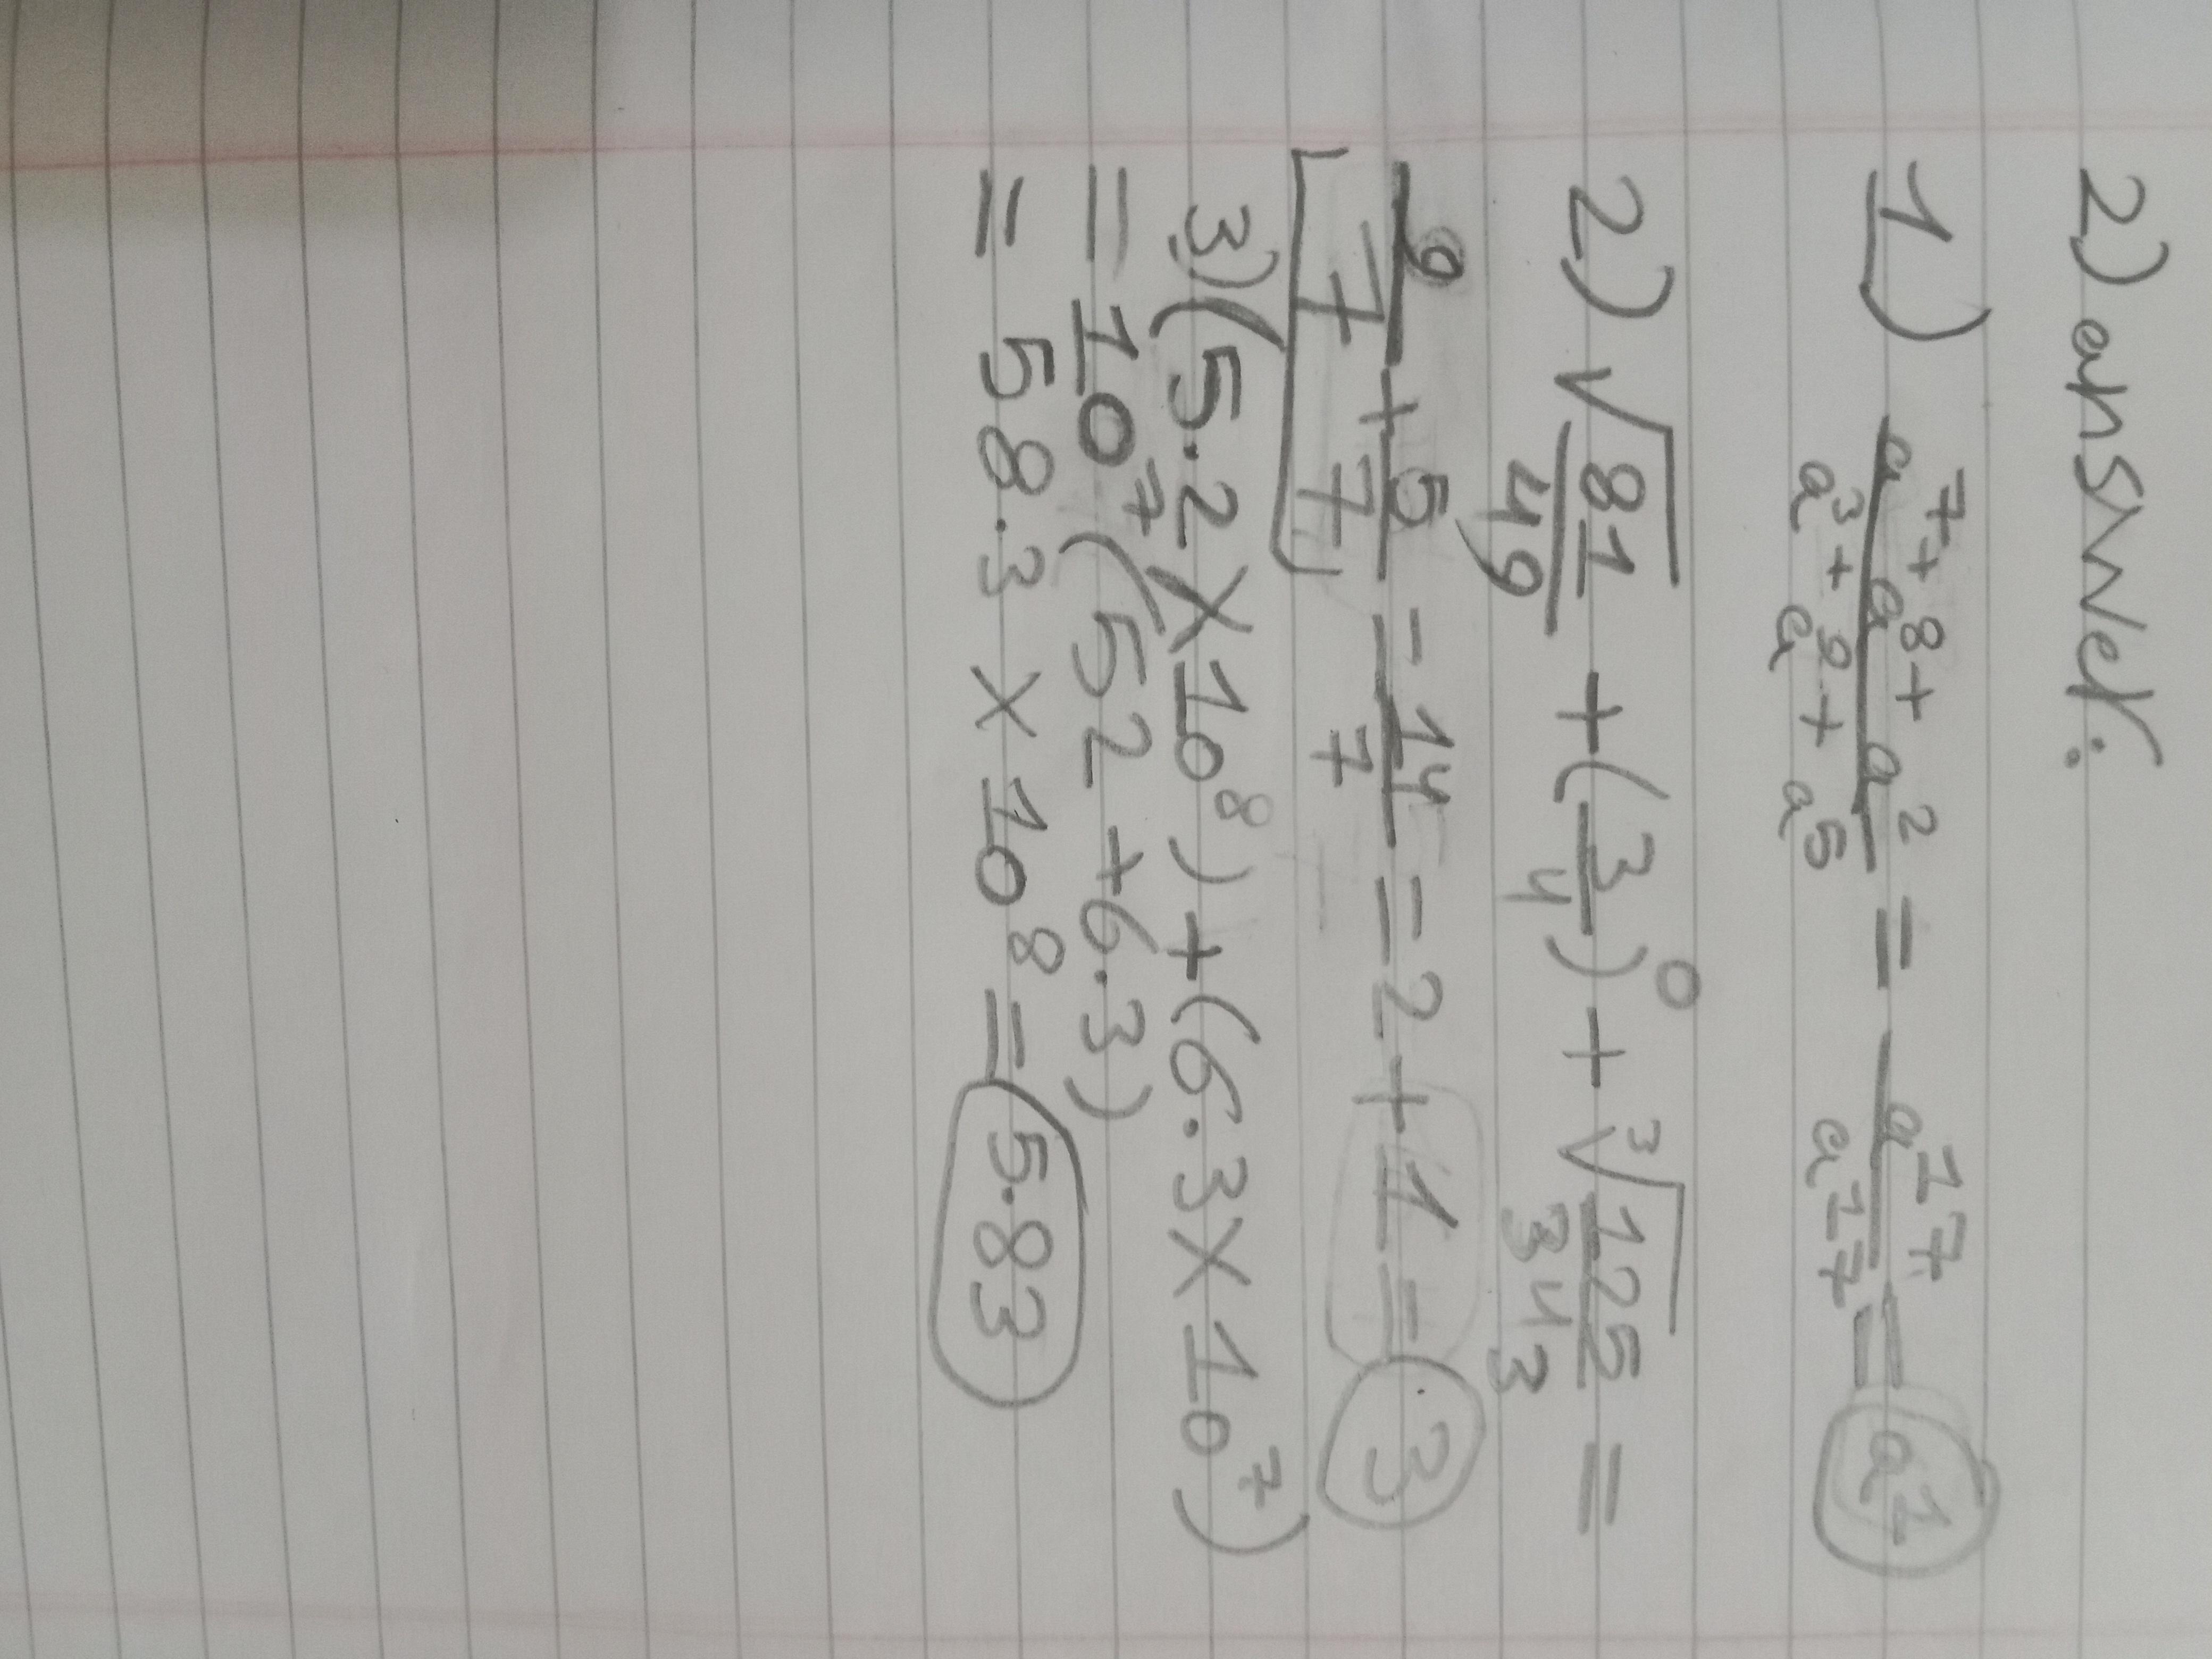 2) answer:
1) a⁷ + a⁸ + a² / a³ + a⁹ + a⁵ = a¹⁷ / a¹⁷ = a¹
2) √81/49 + (3/4)⁰ + ³√125/343 =
9/7 + 5/7 = 14/7 = 2 + 1 = 3
3) (5.2 × 10⁸) + (6.3 × 10⁷)
= 10⁷ (52 + 6.3)
= 58.3 × 10⁸ = 5.83